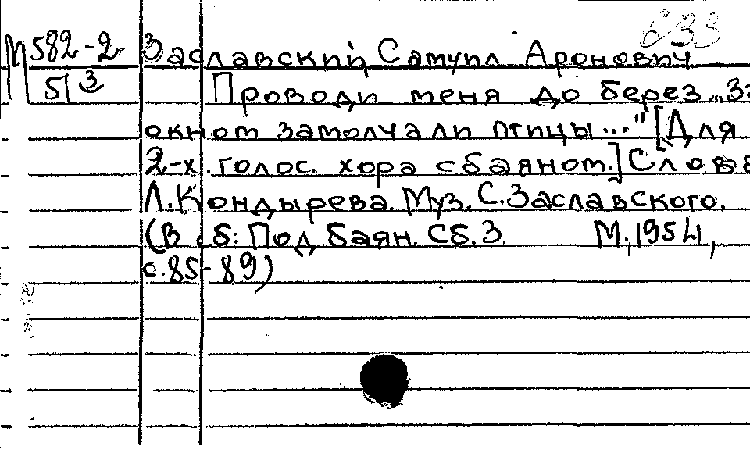 833
М 582-2 Заславский, Самуил Аронович
5/3 Проводи меня до берез „За
окном замолчали птицы..." [Для
2-х. голос. хора с баяном.] Слова
Л. Кондырева. Муз. С. Заславского.
(В сб: Под баян. Сб. 3. М., 1954,
с. 85-89)